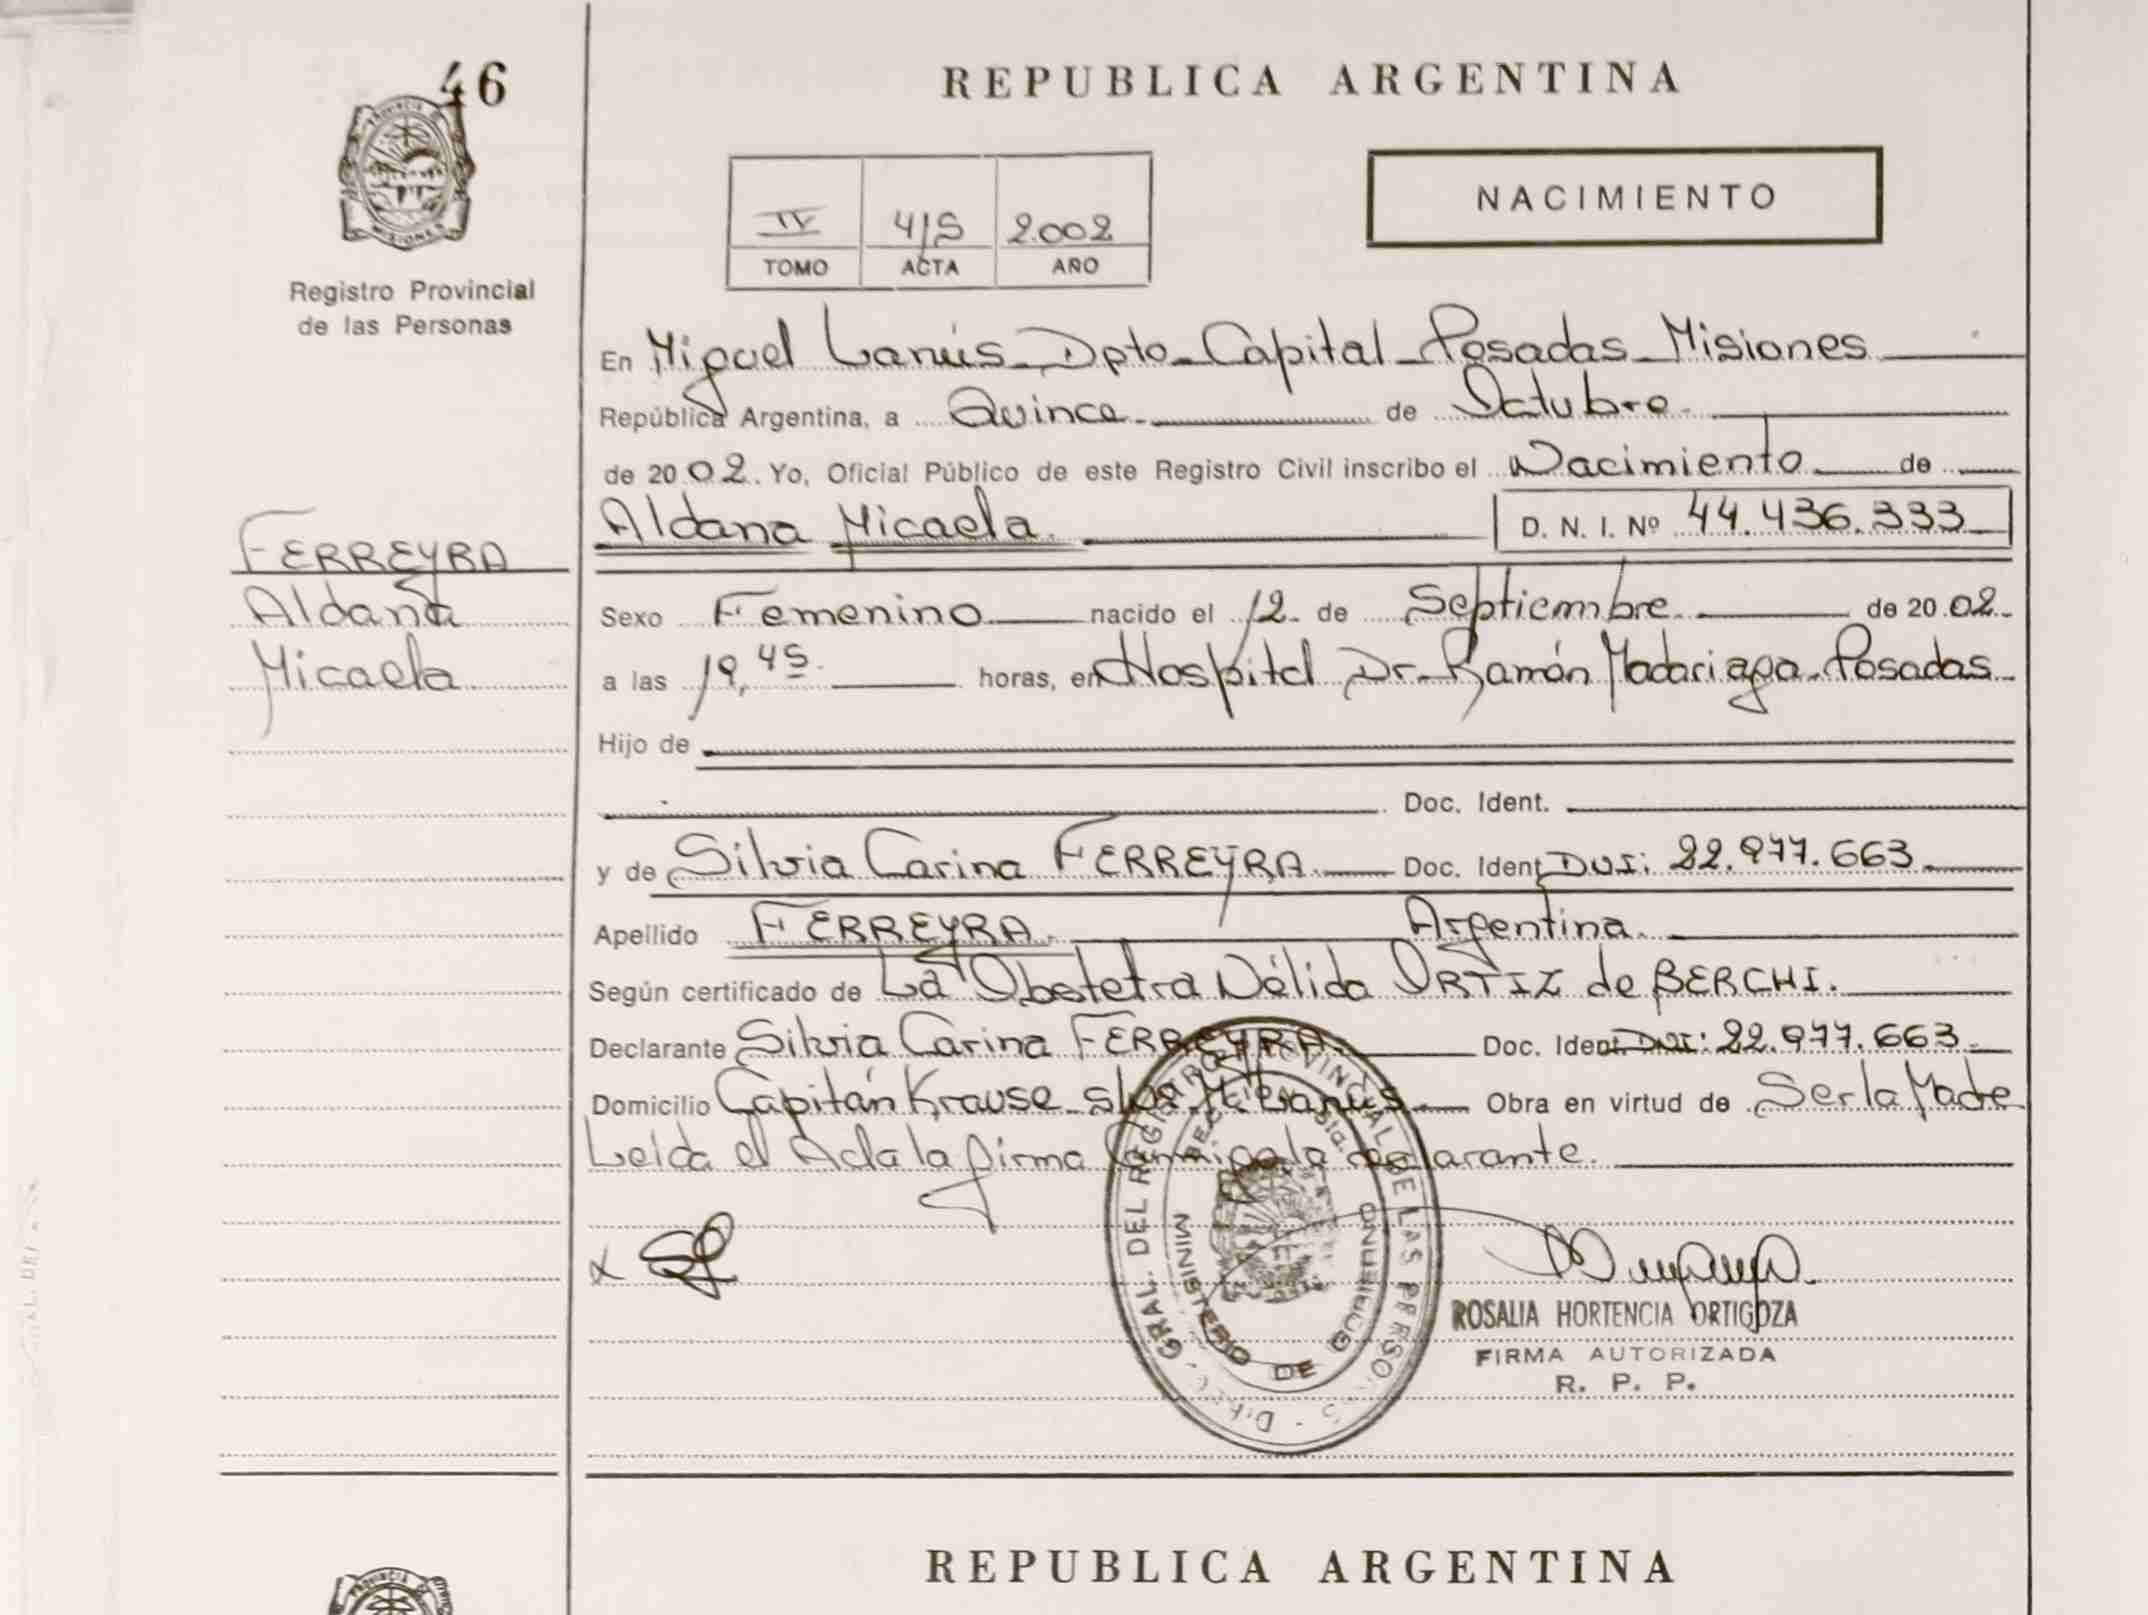 46
REPUBLICA ARGENTINA
NACIMIENTO
IV 415 2.002
TOMO ACTA AÑO
PROVINCIA DE
MISIONES
Registro Provincial
de las Personas
En Miguel Lanús - Dpto - Capital - Posadas - Misiones
República Argentina, a Quince de Octubre
de 2002. Yo, Oficial Público de este Registro Civil inscribo el Nacimiento de
Aldana Micaela. D. N. I. Nº 44.436.333
FERREYRA
Aldana
Micaela
Sexo Femenino nacido el 12 de Septiembre de 2002
a las 19,45 horas, en Hospital Dr. Ramón Madariaga - Posadas
Hijo de
Doc. Ident.
y de Silvia Carina FERREYRA Doc. Ident DNI: 22.977.663
Apellido FERREYRA. Argentina.
Según certificado de La Obstetra Nélida ORTIZ de BERCHI.
Declarante Silvia Carina FERREYRA Doc. Ident. DNI: 22.977.663
Domicilio Capitán Krause s/nº M. Lanús Obra en virtud de Ser la Madre
Leída el Acta la firma Conmigo la declarante.
x
GRAL. DEL REGISTRO PROVINCIAL DE LAS PERSONAS
MINISTERIO DE GOBIERNO
ROSALIA HORTENCIA ORTIGOZA
FIRMA AUTORIZADA
R. P. P.
REPUBLICA ARGENTINA
PROVINCIA DE